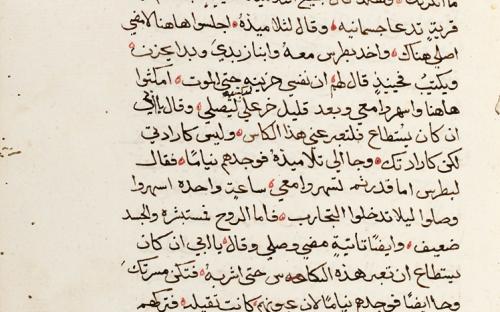 قرية تدعا جسمانيه وقال لتلاميذه اجلسوا هاهنا لامضي
اصلي هناك واخد بطرس معه وابنا زبدي وبدا يحزن
ويكتيب فحينيذ قال لهم ان نفسي حزينه حتي الموت امكثوا
هاهنا واسهروا معي وبعد قليل خر علي يصلي وقال يا ابي
ان كان يستطاع فلتعبر عني هذا الكاس وليس كارادتي
لكن كارادتك وجا الي تلاميذه فوجدهم نياما فقال
لبطرس اما قدرتم تسهروا معي ساعة واحده اسهروا
وصلوا ليلا تدخلوا التجارب فاما الروح فستبشره والجسد
ضعيف وايضا تانية مضي وصلي وقال يا ابي ان كان
يستطاع ان تعبر هذه الكاس حتي اشربه فتكن مسرتك
وجا ايضا فوجدهم نياما لان عيونهم كانت تقيله فتركهم